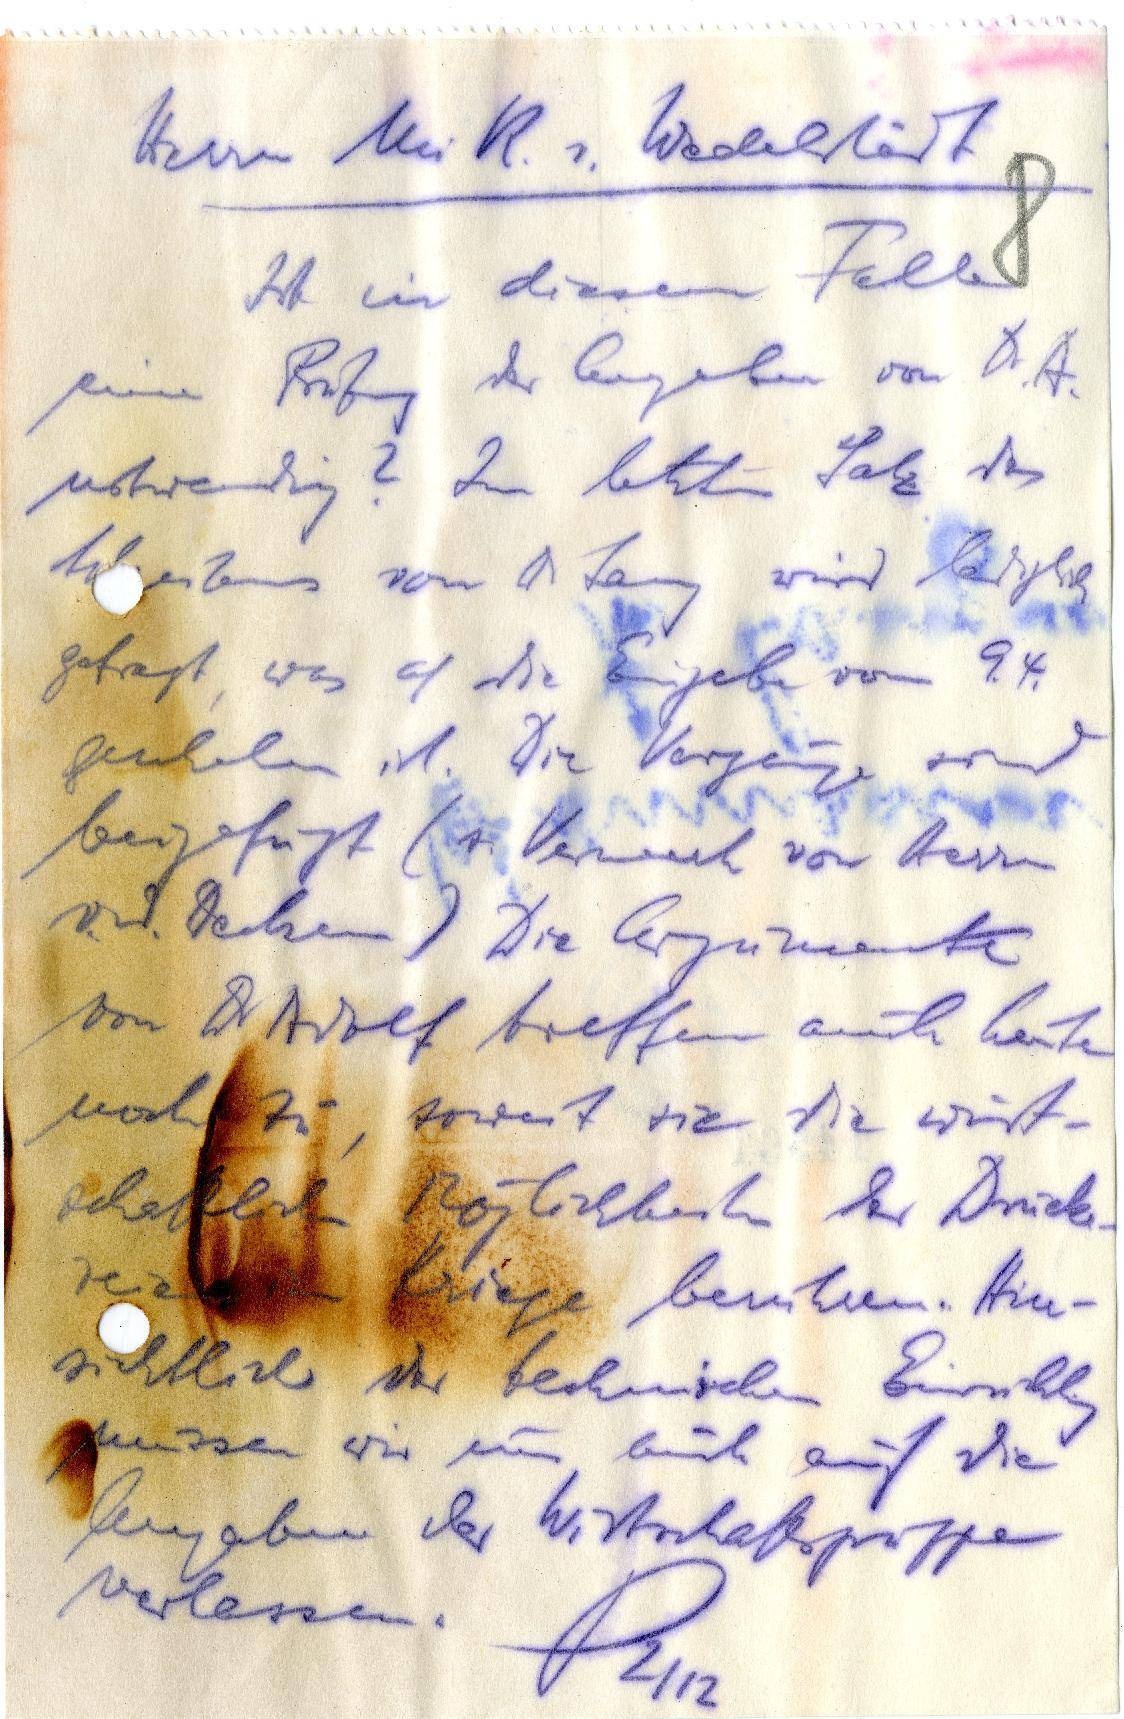 Herrn Min R. v. Wedelstädt
8
Ist in diesem Falle
eine Prüfung der Angaben von Dr. A.
notwendig? Im letzten Satz des
Schreibens von Dr Lang wird lediglich
gefragt, was auf die Eingabe vom 9.4.
geschehen ist. Die Vorgänge sind
beigefügt (s. Vermerk von Herrn
v.d. Decken) Die Argumente
von Dr Adolf treffen auch heute
noch zu, soweit sie die wirt-
schaftlichen Möglichkeiten der Drucke-
reien im Kriege berühren. Hin-
sichtlich der technischen Einrichtung
müssen wir uns auch auf die
Angaben der Wirtschaftsgruppe
verlassen.
P 2/12